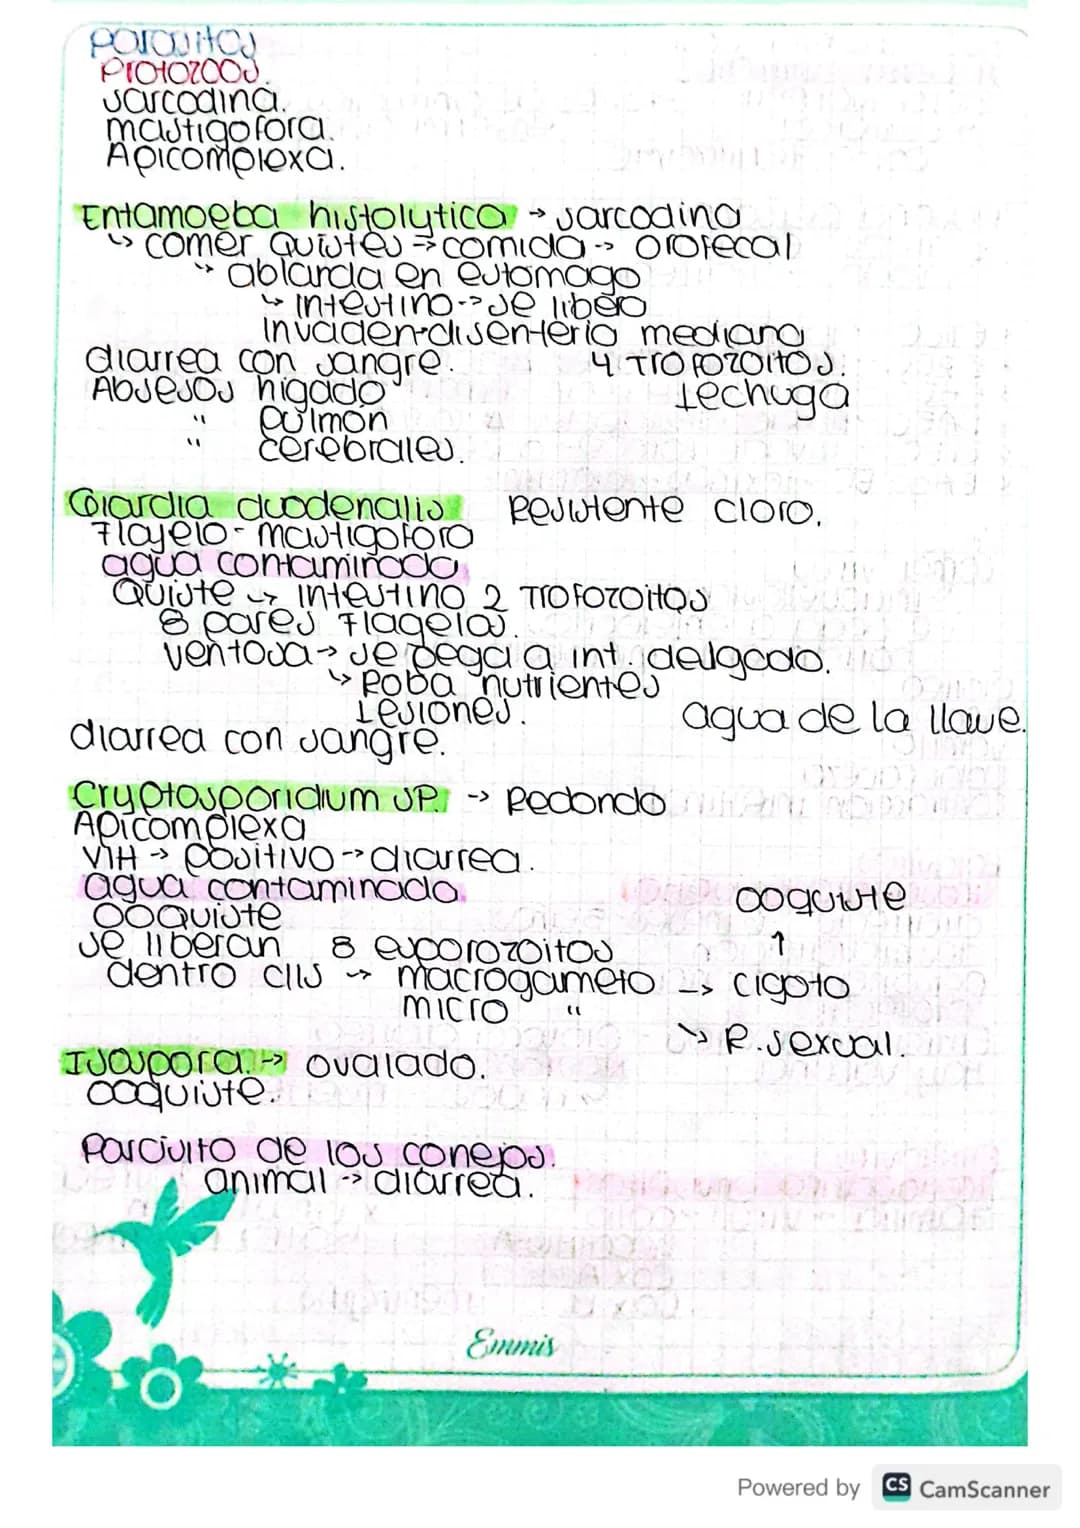 Parasitos
Protozoos.
sarcodina.
mastigofora.
Apicomplexa.
Entamoeba histolytica → sarcodina
↳ comer quistes ⇒ comida → orofecal
↳ ablanda en estomago
↳ Intestino -> se libero
Invaden→disenteria mediana
diarrea con sangre. 4 Trofozoitos.
Absesos higado Lechuga
" pulmón
" cerebrales.
Giardia duodenalis Resistente cloro.
Flagelo - mastigoforo
agua contaminada
Quiste ↪ intestino 2 Trofozoitos
8 pares Flagelos.
ventosa → se pega a int. delgado.
↳ Roba nutrientes
Lesiones. agua de la llave.
diarrea con sangre.
Cryptosporidium sp. -> Redondo
Apicomplexa
VIH → positivo -> diarrea.
agua contaminada
ooquiste ooquiste
se liberan 8 esporozoitos ↑
dentro clls → macrogameto → cigoto
micro "
↘ R. sexual.
Isospora. → ovalado.
ooquiste.
Parasito de los conejos.
animal -> diarrea.
Emmis
Powered by CS CamScanner